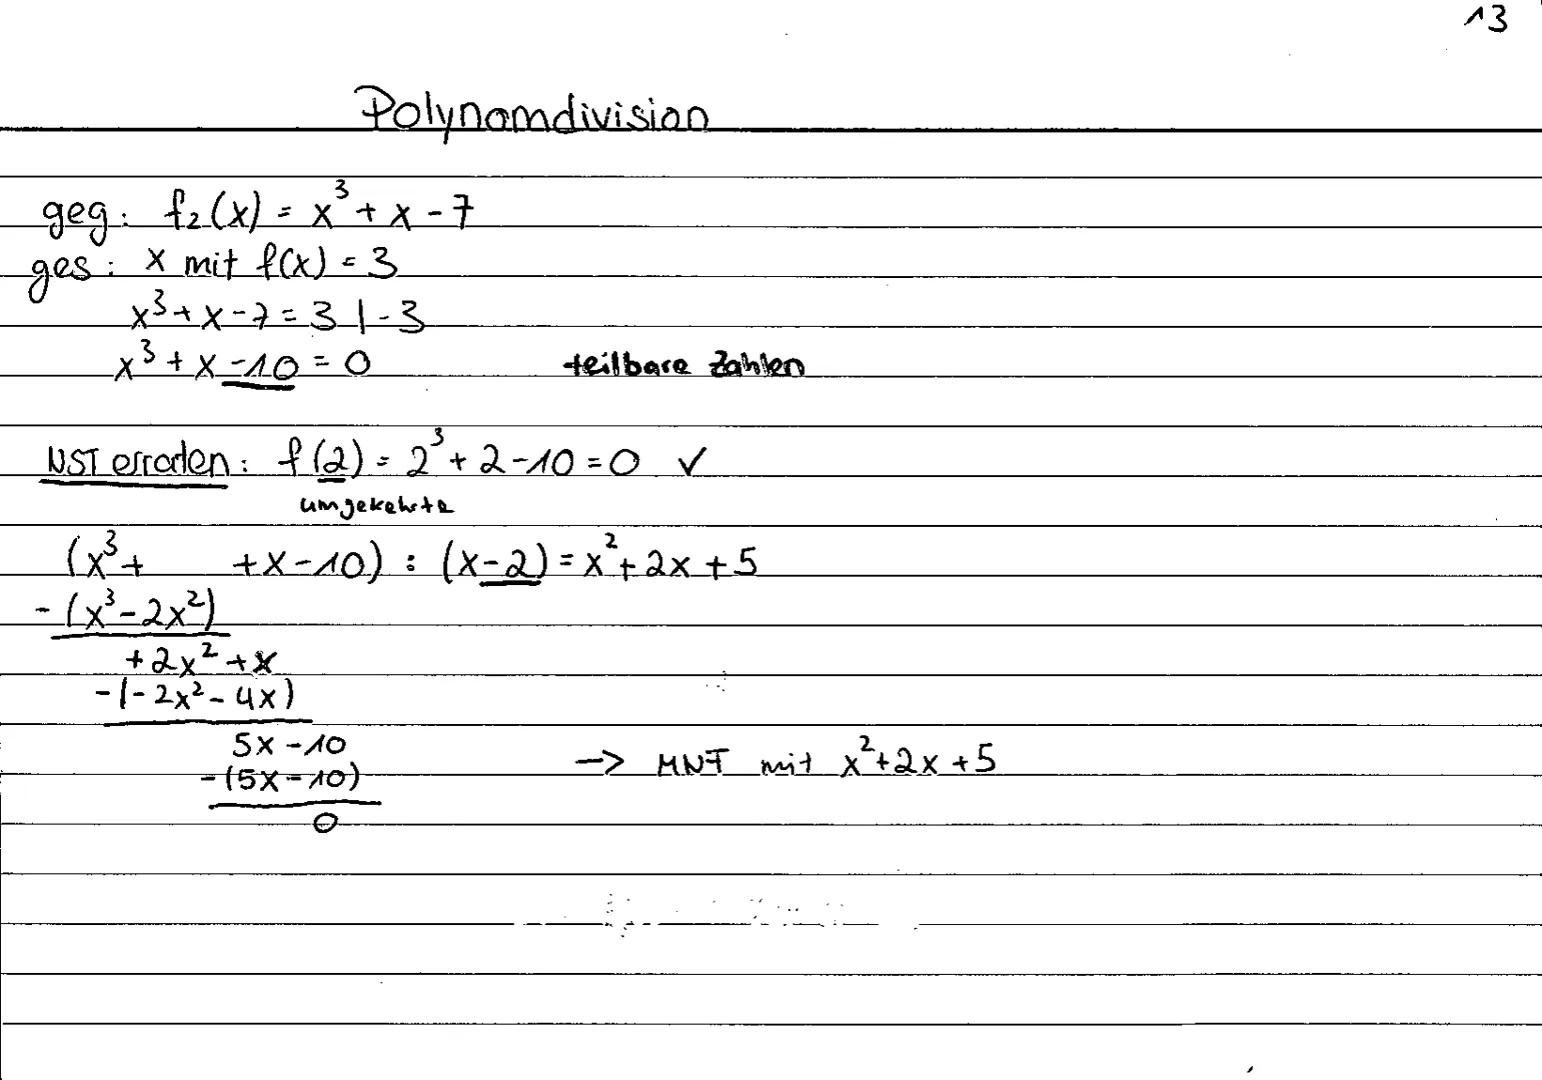 13
Polynomdivision
geg: f₂(x) = x³ + x - 7
ges: x mit f(x) = 3
x³ + x - 7 = 3 | - 3
x³ + x - 10 = 0 teilbare Zahlen
NST erraten: f(2) = 2³ + 2 - 10 = 0 ✓
umgekehrte
(x³ + + x - 10) : (x - 2) = x² + 2x + 5
- (x³ - 2x²)
+ 2x² + x
- (- 2x² - 4x)
5x - 10
- (5x - 10)
0
-> MNF mit x² + 2x + 5